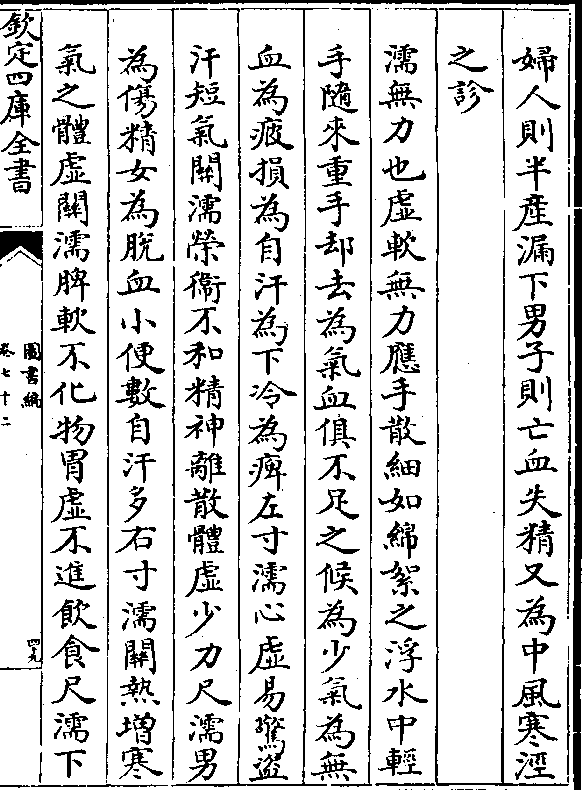 婦人則半產漏下男子則亡血失精又為中風寒溼
之診
濡無力也虛軟無力應手散細如綿絮之浮水中輕
手隨來重手却去為氣血俱不足之候為少氣為無
血為疲損為自汗為下冷為痺左寸濡心虛易驚盜
汗短氣關濡榮衞不和精神離散體虛少力尺濡男
為傷精女為脫血小便數自汗多右寸濡關熱增寒
氣之體虛關濡脾軟不化物胃虛不進飲食尺濡下
欽定四庫全書
圖書編
卷七十二
四九